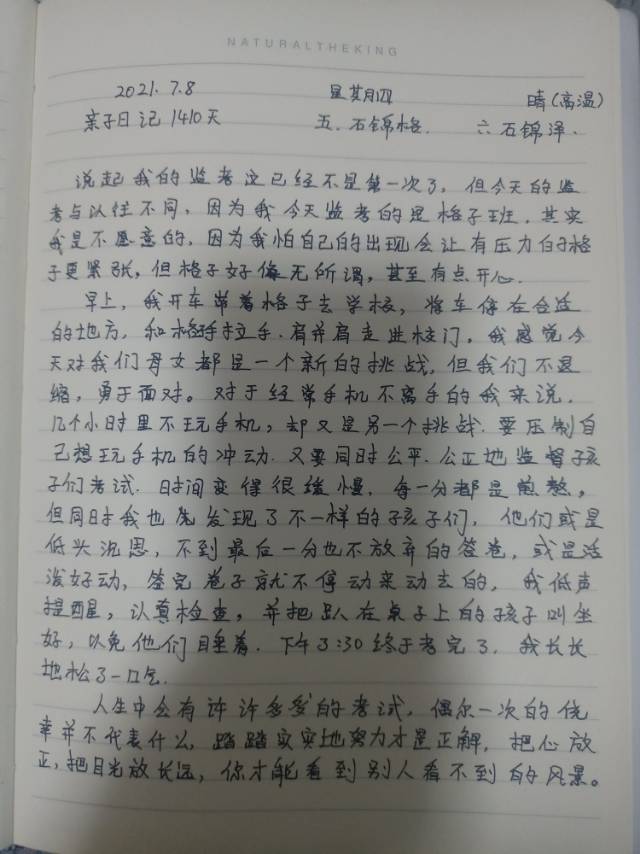 NATURALTHEKING
2021.7.8 星期四 晴(高温)
亲子日记1410天 五.石锦格. 六石锦泽.
说起我的监考这已经不是第一次了，但今天的监
考与以往不同，因为我今天监考的是格子班，其实
我是不愿意的，因为我怕自己的出现会让有压力的格
子更紧张，但格子好像无所谓，甚至有点开心.
早上，我开车带着格子去学校，将车停在合适
的地方，和格子手拉手.肩并肩走进校门，我感觉今
天对我们母女都是一个新的挑战，但我们不退
缩，勇于面对。对于经常手机不离手的我来说.
几个小时里不玩手机，却又是另一个挑战.要压制自
己想玩手机的冲动.又要同时公平.公正地监督孩
子们考试.时间变得很缓慢.每一分都是煎熬，
但同时我也发现了不一样的孩子们，他们或是
低头沉思，不到最后一分也不放弃的答卷，或是活
泼好动，答完卷子就不停动来动去的，我低声
提醒，认真检查，并把趴在桌子上的孩子叫坐
好，以免他们睡着.下午3:30终于考完了.我长长
地松了一口气.
人生中会有许许多多的考试，偶尔一次的侥
幸并不代表什么，踏踏实实地努力才是正解，把心放
正，把目光放长远，你才能看到别人看不到的风景。